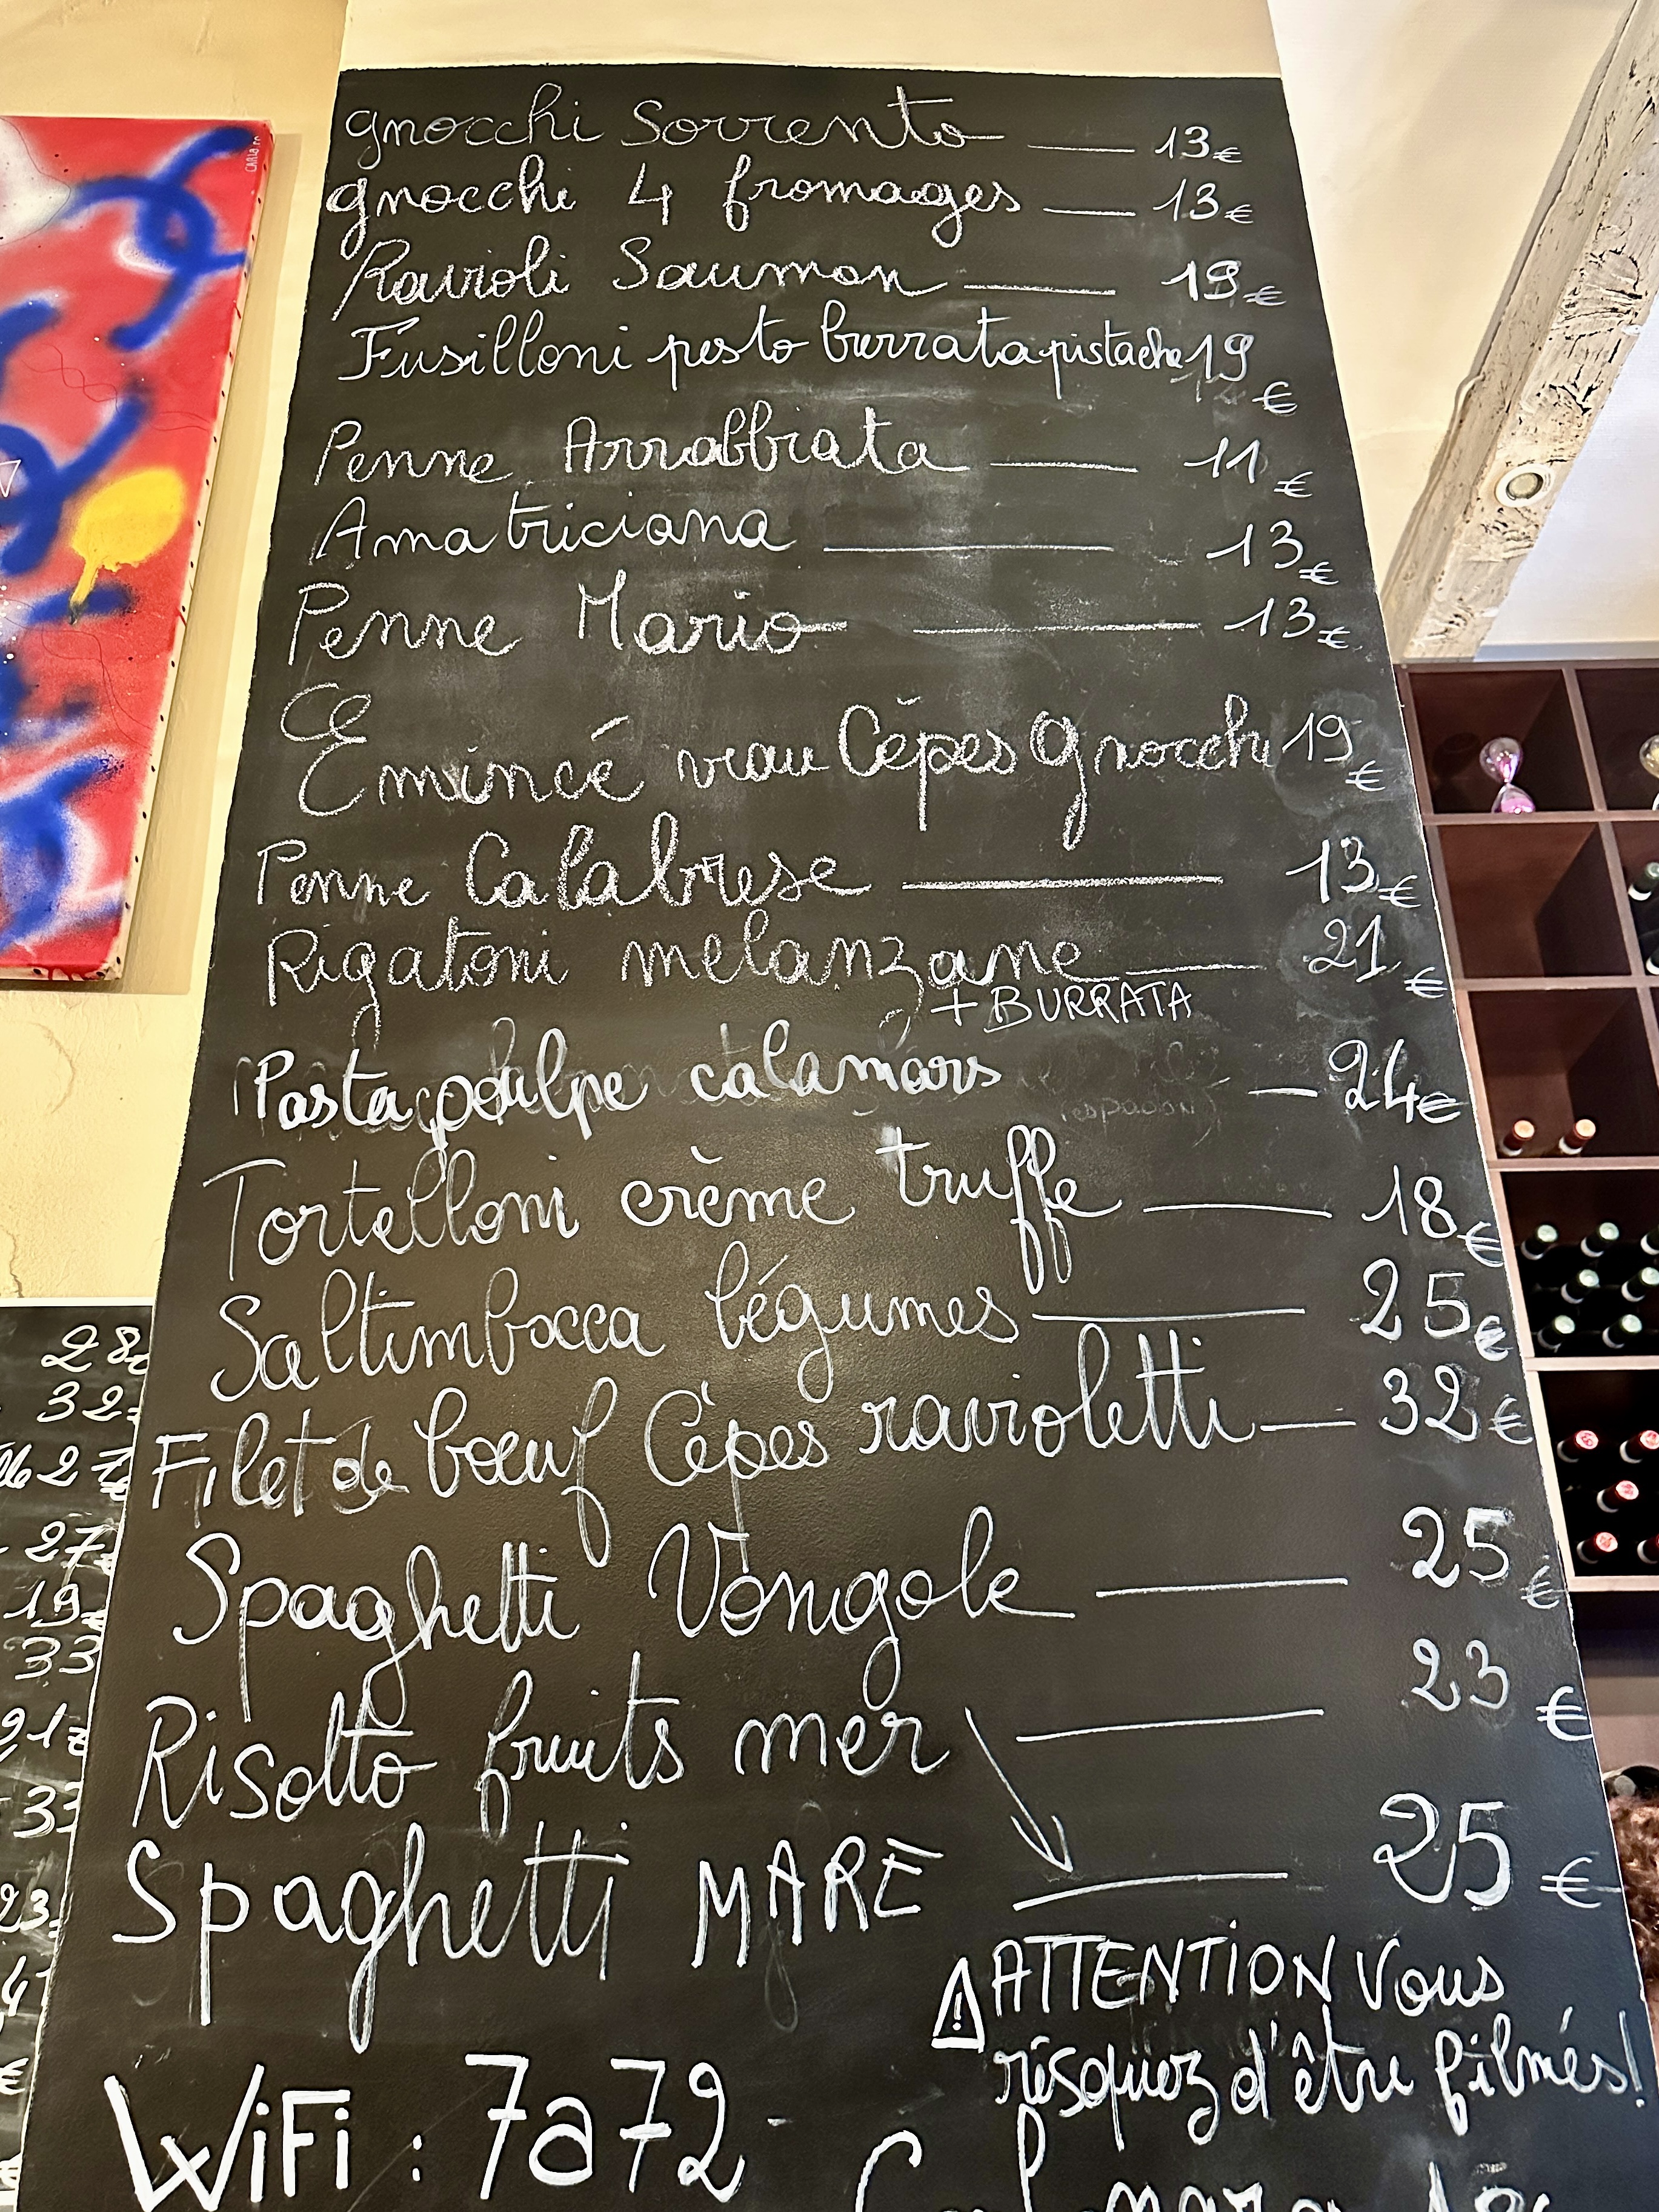 gnocchi Sorrento 13€
gnocchi 4 fromages 13€
Ravioli Saumon 19€
Fusilloni pesto burrata pistache 19€
Penne Arrabbiata 11€
Amatriciana 13€
Penne Mario 13€
Emincé veau Cèpes gnocchi 19€
Penne Calabrese 13€
Rigatoni melanzane 21€
+ BURRATA
Pasta poulpe calamars 24€
Tortelloni crème truffe 18€
Saltimbocca légumes 25€
Filet de bœuf Cèpes ravioletti 32€
Spaghetti Vongole 25€
Risotto fruits mer 23€
Spaghetti MARE 25€
⚠ ATTENTION Vous
risquez d'être filmés!
WiFi : 7a72-
28
32
27
19
33
21
33
23